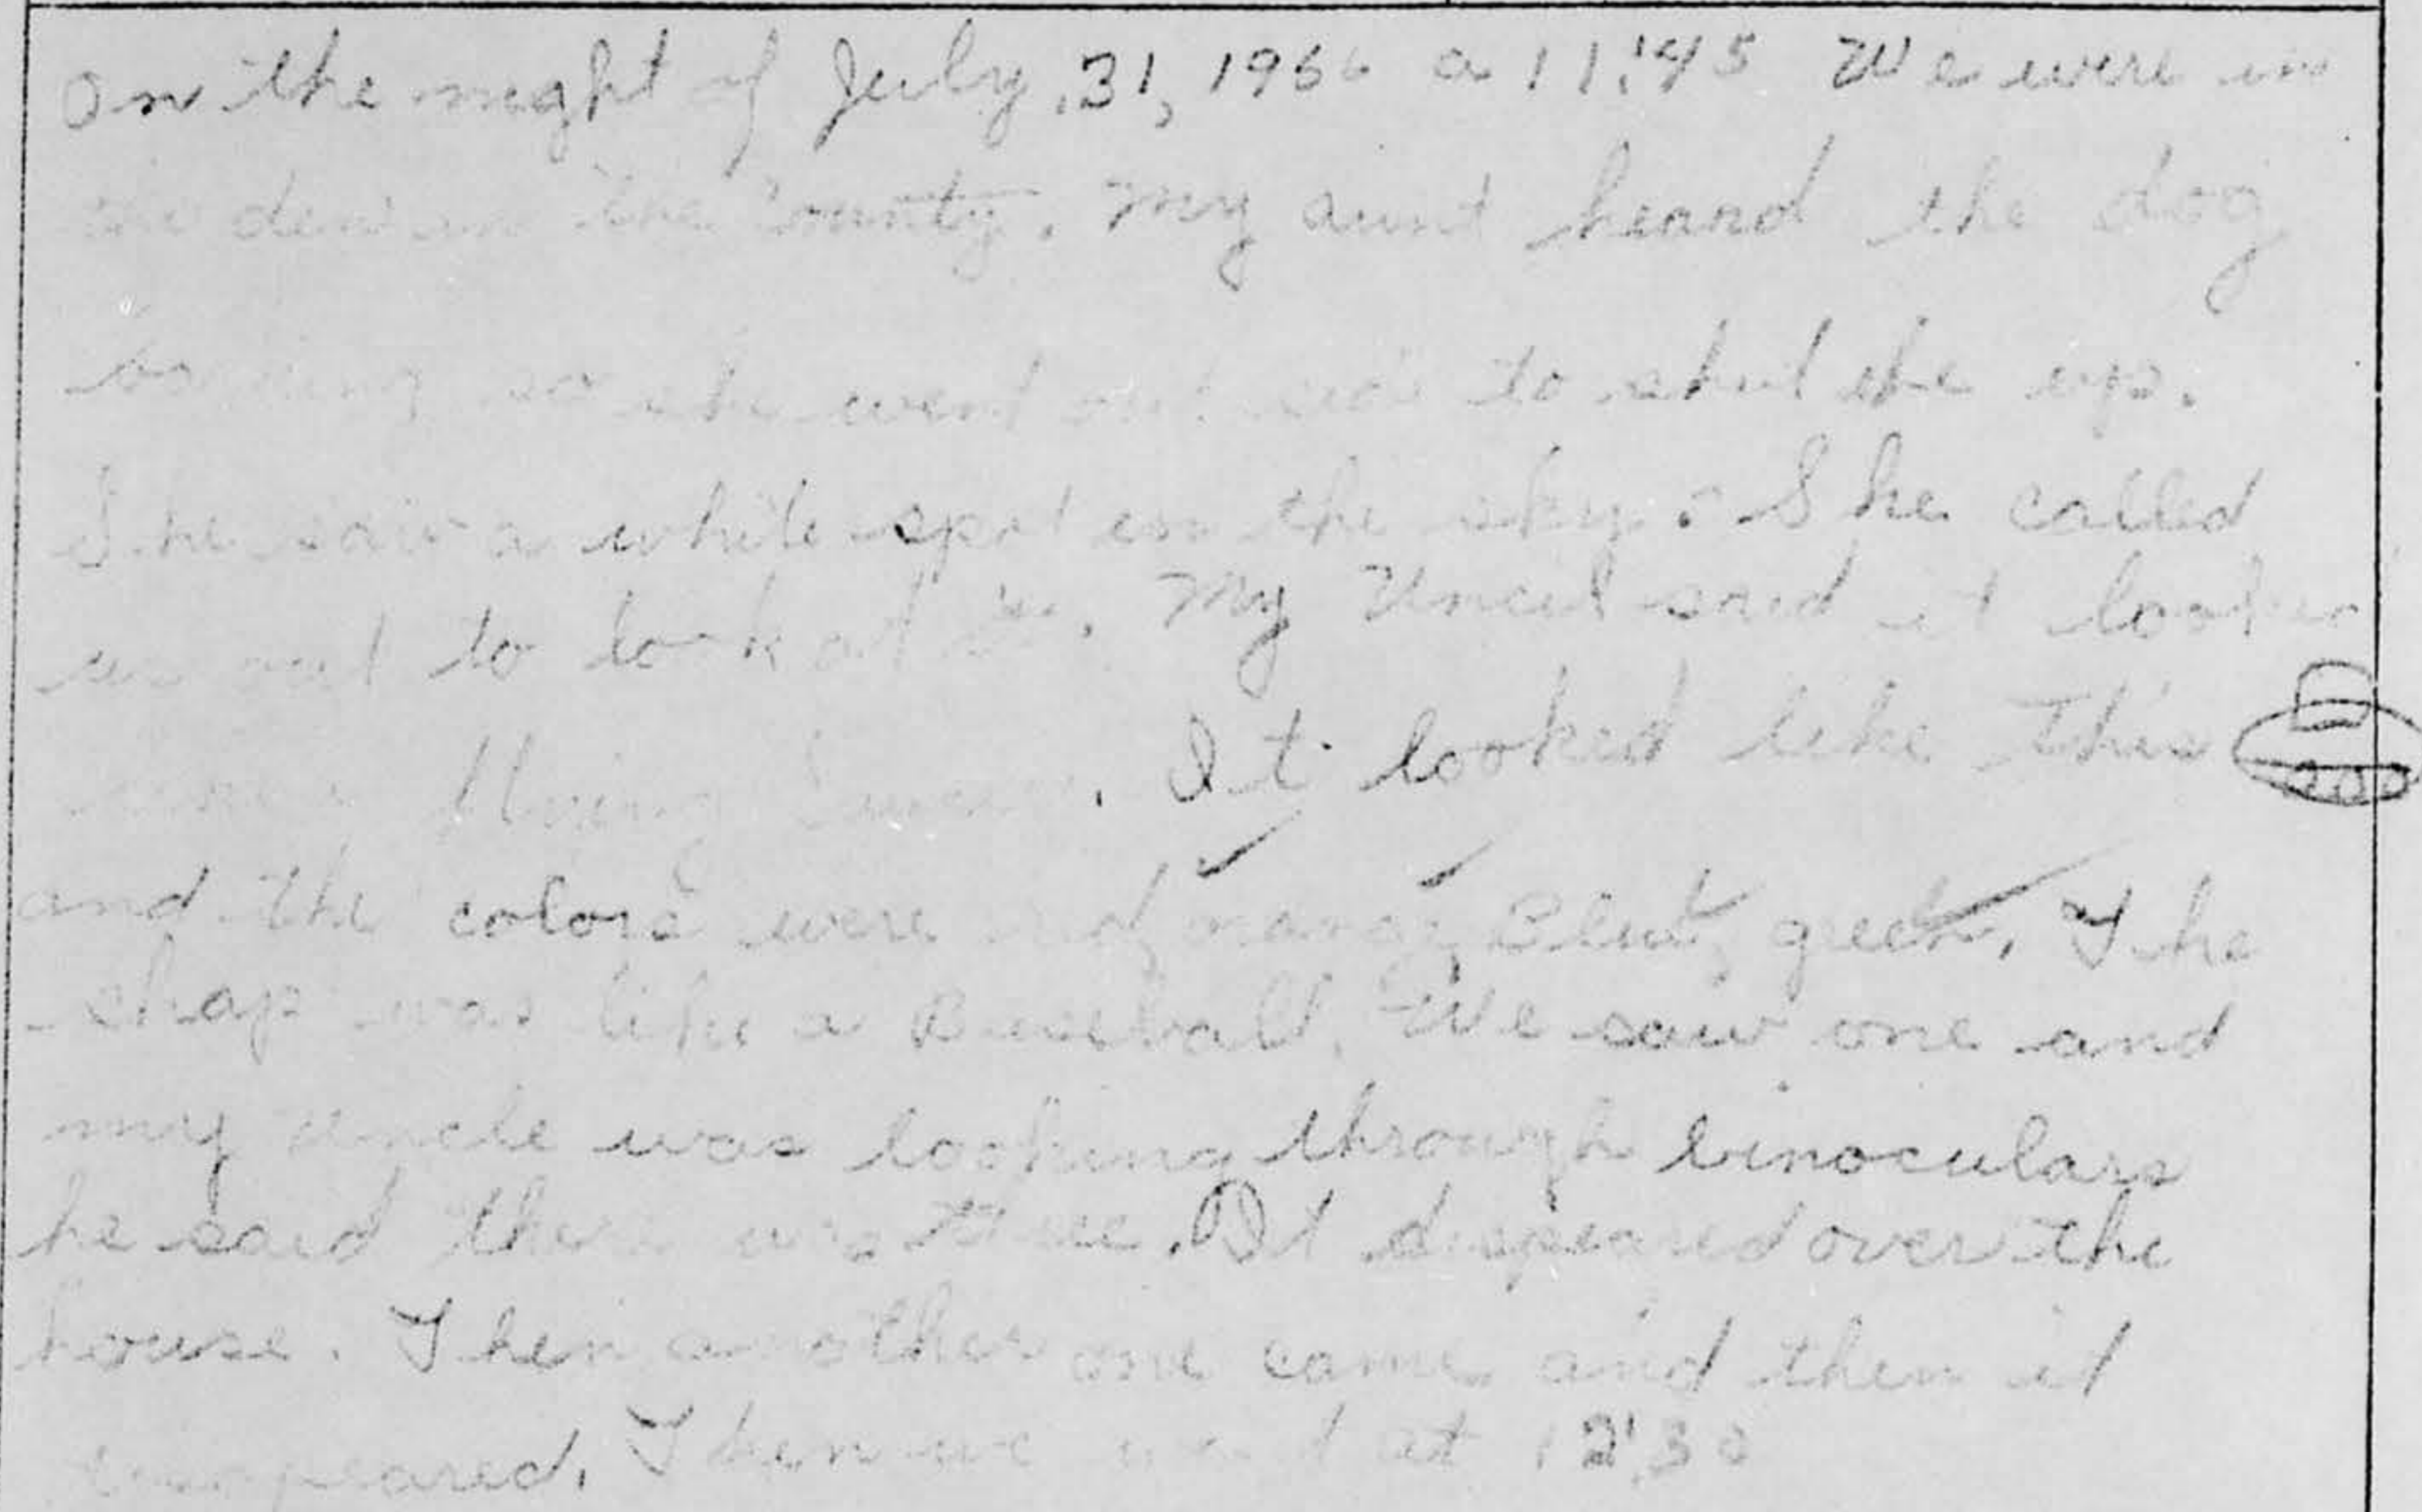 On the night of July, 31, 1966 a 11:45 We were in
the den in the County. My aunt heard the dog
so she went out side to shut the up.
She saw a white spot in the sky. She called
us out to look at it. My Uncul said it looked
flying. It looked like this
and the colors were red, orang, Blue, green, The
shap was like a Baseball. We saw one and
my uncle was looking through binoculars
he said there was three. It disapeared over the
house. Then another one came and then it
Then we at 12:30